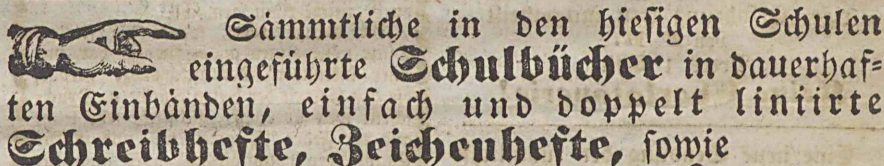 Sämmtliche in den hiesigen Schulen
eingeführte Schulbücher in dauerhaf-
ten Einbänden, einfach und doppelt liniirte
Schreibhefte, Zeichenhefte, sowie